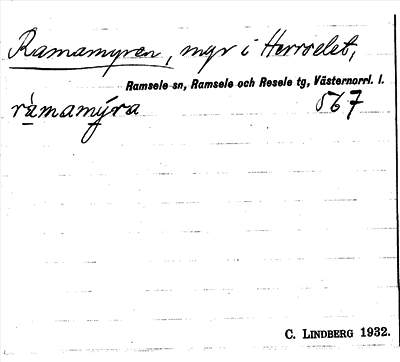 Ramamyran, myr i Herrselet,
Ramsele sn, Ramsele och Resele tg, Västernorrl. l.
ràmamýra 567
C. LINDBERG 1932.